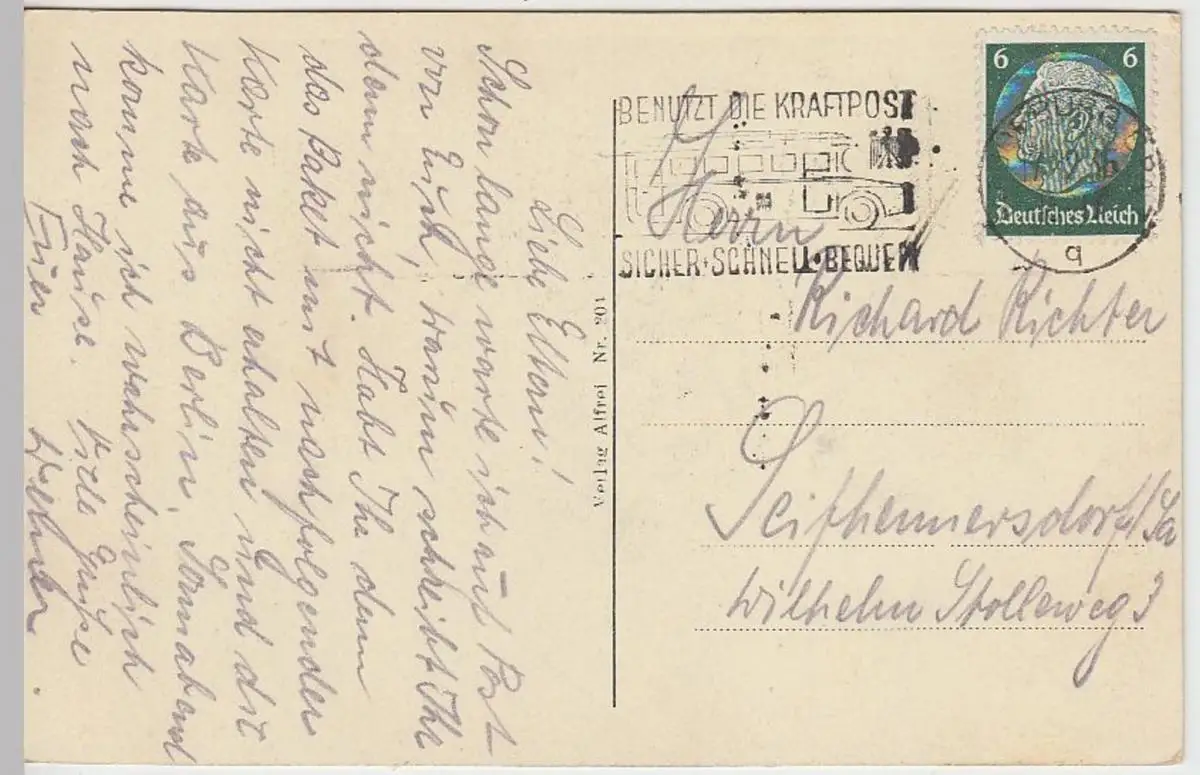 Liebe Eltern!
Schon lange warte ich auf Post
von Euch, warum schreibt Ihr
denn nicht. Habt Ihr denn
das Paket mit nachfolgender
Karte nicht erhalten und die
Karte aus Berlin. Sonnabend
komme ich wahrscheinlich
nach Hause. Viele Grüße
Euer
Verlag Alfrei Nr. 201
BENUTZT DIE KRAFTPOST
SICHER + SCHNELL + BEQUEM
6 6
Deutsches Reich
q
Herrn
Richard Richter
Seifhennersdorf/Sa
Wilhelm Stolleweg 3